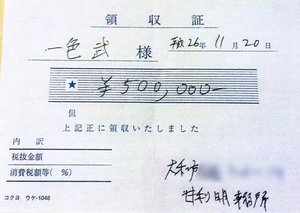 領収証
一色武 様 平成26年11月20日
★ ¥500,000-
但
上記正に領収いたしました
内訳
税抜金額
消費税額等(  %)
大和市
甘利明事務所
コクヨ ウケ-1048